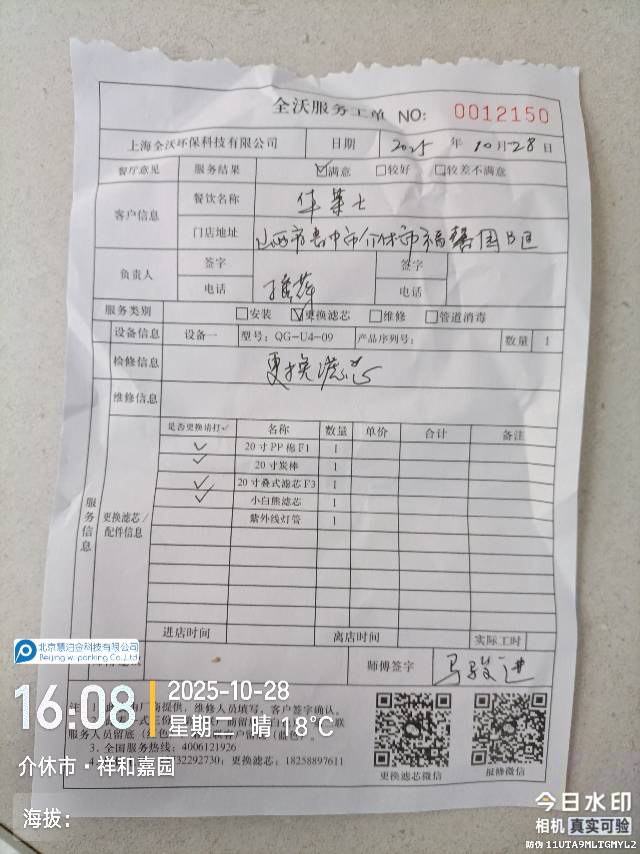 全沃服务工单 NO: 0012150
上海全沃环保科技有限公司 日期 2025 年 10月28日
餐厅意见 服务结果 ☑满意 □较好 □较差不满意
客户信息 餐饮名称 华莱士
门店地址 山西省晋中市介休市
负责人 签字 签字
电话 电话
服务类别 □安装 ☑更换滤芯 □维修 □管道消毒
设备信息 设备一 型号: QG-U4-09 产品序列号: 数量 1
检修信息 更换滤芯
维修信息
服务信息
更换滤芯/配件信息
是否更换请打✓ 名称 数量 单价 合计 备注
✓ 20寸PP棉F1 1
✓ 20寸炭棒 1
✓ 20寸叠式滤芯F3 1
✓ 小白熊滤芯 1
紫外线灯管 1
进店时间 离店时间 实际工时
师傅签字 马骏进
北京慧泊金科技有限公司
Beijing w-parking Co.,Ltd
16:08
2025-10-28
星期二 晴 18℃
介休市·祥和嘉园
海拔:
厂商提供, 维修人员填写, 客户签字确认。
3. 全国服务热线: 4006121926
32292730; 更换滤芯: 18258897611
更换滤芯微信 报修微信
今日水印
相机 真实可验
防伪 11UTA9MLTGMYL2